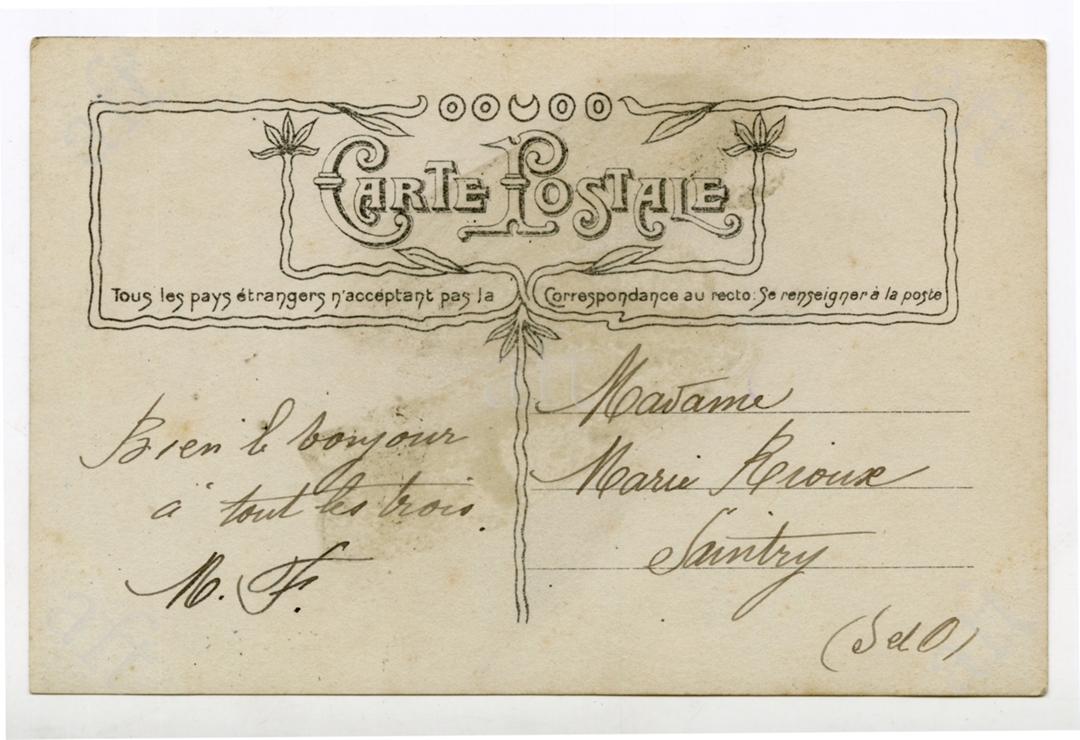 CARTE POSTALE
Tous les pays étrangers n'acceptant pas la Correspondance au recto: Se renseigner à la poste
Bien le bonjour
à tout les trois.
M. F.
Madame
Marie Rioux
Saintry
(S et O)